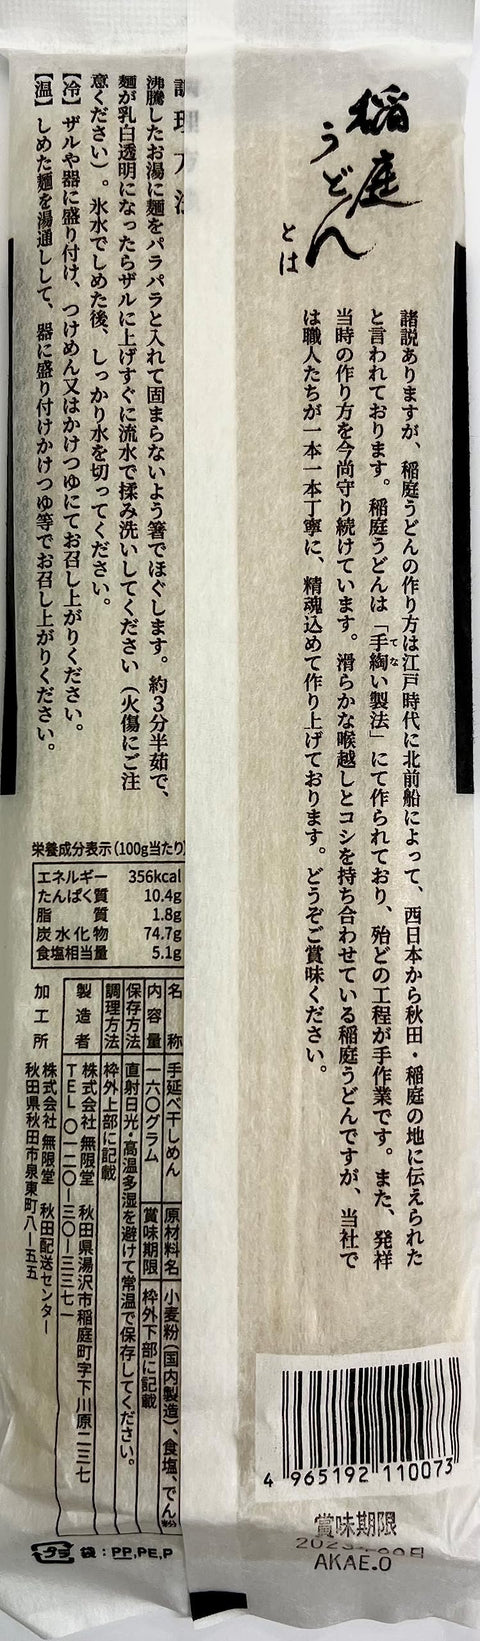 稲庭
うどん
とは
諸説ありますが、稲庭うどんの作り方は江戸時代に北前船によって、西日本から秋田・稲庭の地に伝えられた
と言われております。稲庭うどんは「手綯い製法」にて作られており、殆どの工程が手作業です。また、発祥
てな
当時の作り方を今尚守り続けています。滑らかな喉越しとコシを持ち合わせている稲庭うどんですが、当社で
は職人たちが一本一本丁寧に、精魂込めて作り上げております。どうぞご賞味ください。
調理方法
沸騰したお湯に麺をパラパラと入れて固まらないよう箸でほぐします。約3分半茹で、
麺が乳白透明になったらザルに上げすぐに流水で揉み洗いしてください(火傷にご注
意ください)。氷水でしめた後、しっかり水を切ってください。
【冷】ザルや器に盛り付け、つけめん又はかけつゆにてお召し上がりください。
【温】しめた麺を湯通しして、器に盛り付けかけつゆ等でお召し上がりください。
栄養成分表示(100g当たり)
エネルギー 356kcal
たんぱく質 10.4g
脂質 1.8g
炭水化物 74.7g
食塩相当量 5.1g
名称 手延べ干しめん 原材料名 小麦粉(国内製造)、食塩、でん粉
内容量 一六〇グラム 賞味期限 枠外下部に記載
保存方法 直射日光・高温多湿を避けて常温で保存してください。
調理方法 枠外上部に記載
製造者 株式会社 無限堂 秋田県湯沢市稲庭町字下川原二三七
TEL 〇一二〇ー三〇ー三三七一
加工所 株式会社 無限堂 秋田配送センター
秋田県秋田市泉東町八ー五五
プラ 袋:PP,PE,P
4 965192 110073
賞味期限
AKAE.O